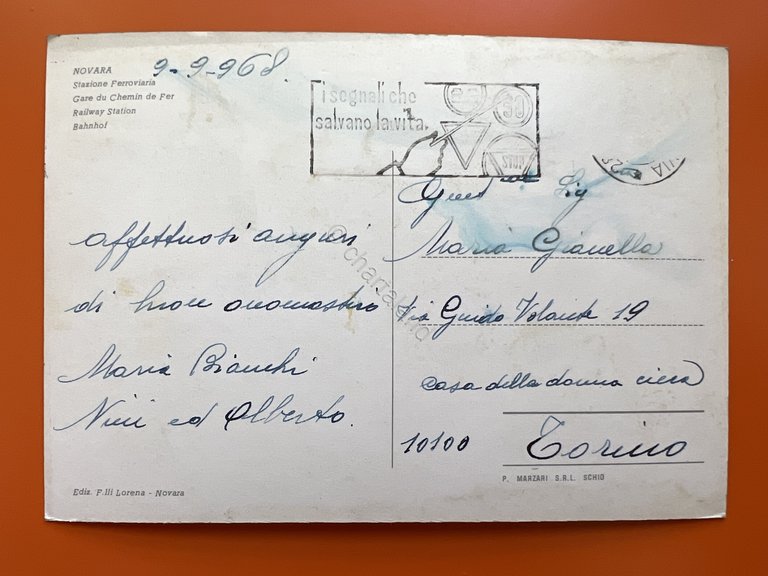 NOVARA
Stazione Ferroviaria
Gare du Chemin de Fer
Railway Station
Bahnhof
9-9-968.
i segnali che
salvano la vita.
50
STOP
Sig
Maria Gianella
Via Guido Volante 19
casa della donna cieca
10100 Torino
affettuosi auguri
di buon onomastico
Maria Bianchi
Nini ed Alberto.
Ediz. F.lli Lorena - Novara
P. MARZARI S.R.L. SCHIO